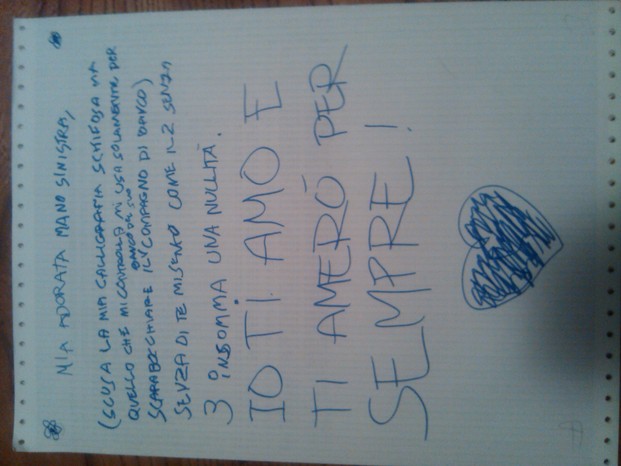 MIA ADORATA MANO SINISTRA,
(SCUSA LA MIA CALLIGRAFIA SCHIFOSA MA
QUELLO CHE MI CONTROLLA MI USA SOLAMENTE PER
SCARABOCCHIARE IL BANCO DEL SUO COMPAGNO DI BANCO)
SENZA DI TE MI SENTO COME IL 2 SENZA
3 INSOMMA UNA NULLITÀ.
IO TI AMO E
TI AMERÒ PER
SEMPRE!